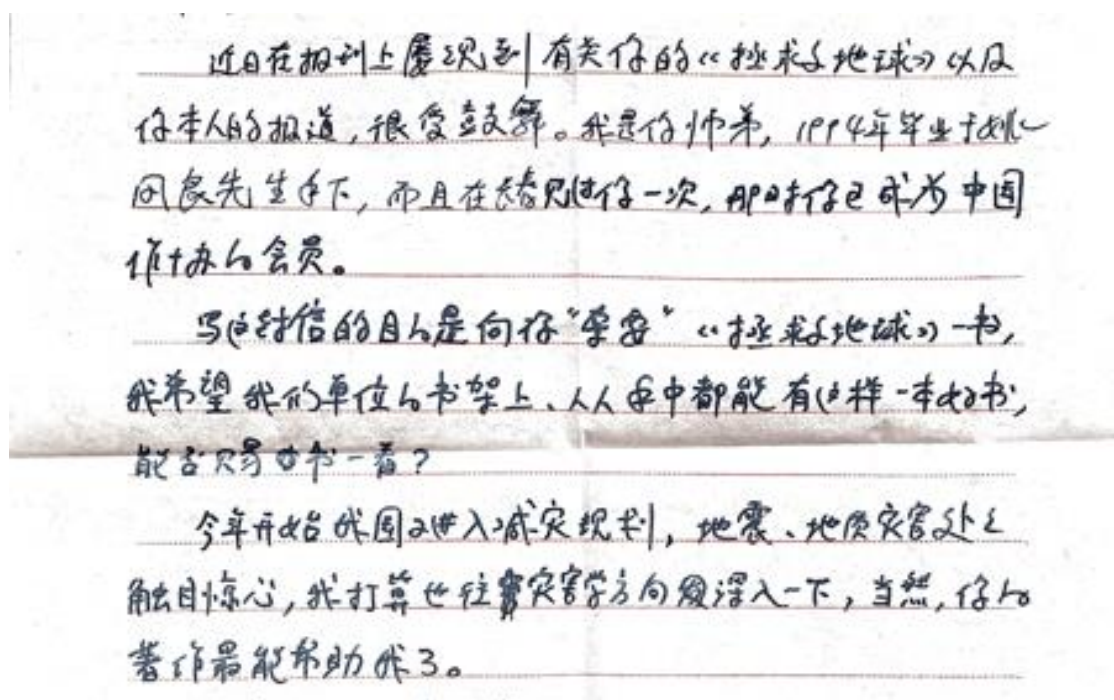 近日在报刊上屡见到有关你的《拯救地球》以及
你本人的报道,很受鼓舞。我是你师弟,1994年毕业于姚
良先生手下,而且在长春见过你一次,那时你已成为中国
作协的会员。
写这封信的目的是向你“索要”《拯救地球》一书,
我希望我们单位的书架上、人人手中都能有这样一本好书,
能否赐书一看?
今年开始我国又进入减灾规划,地震、地质灾害处处
触目惊心,我打算也往灾害学方向深入一下,当然,你的
著作最能帮助我了。